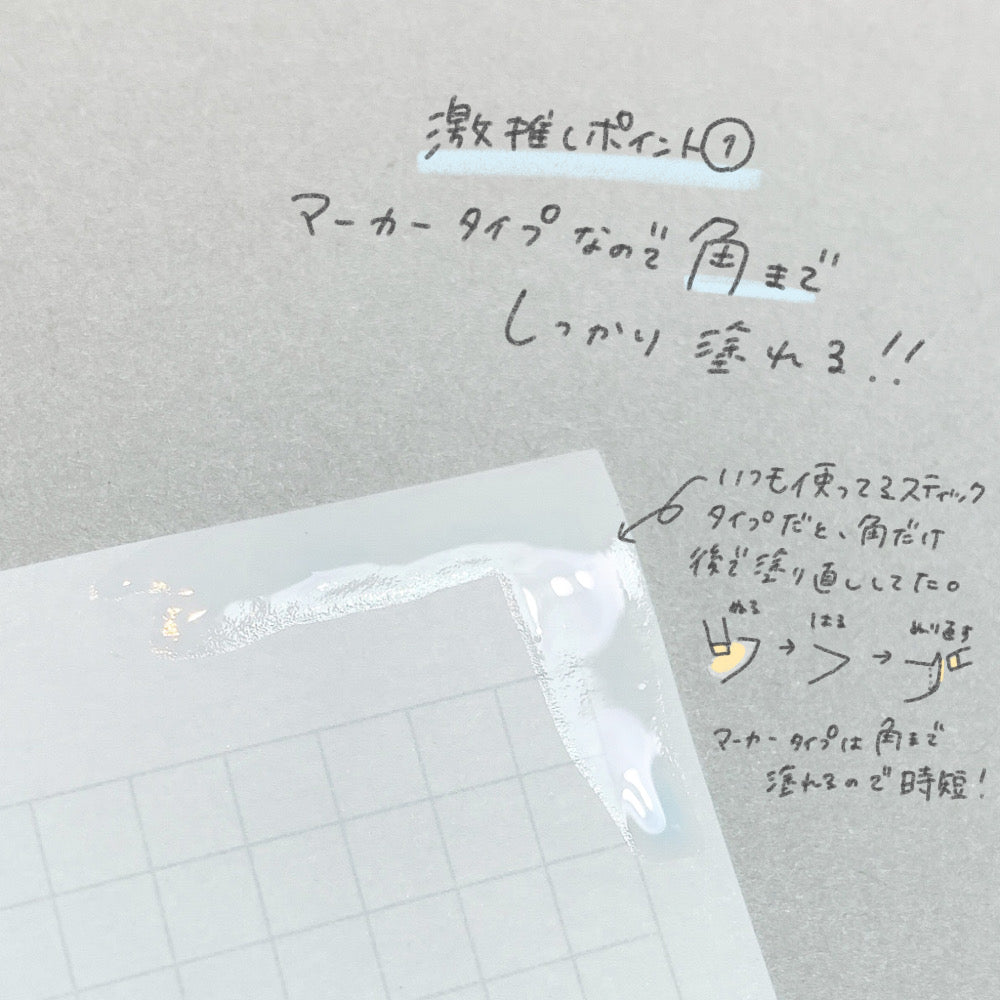 激推しポイント①
マーカータイプなので角まで
しっかり塗れる!!
いつも使ってるスティック
タイプだと、角だけ
後で塗り直ししてた。
ぬる → はる → ぬり直す
マーカータイプは角まで
塗れるので時短!